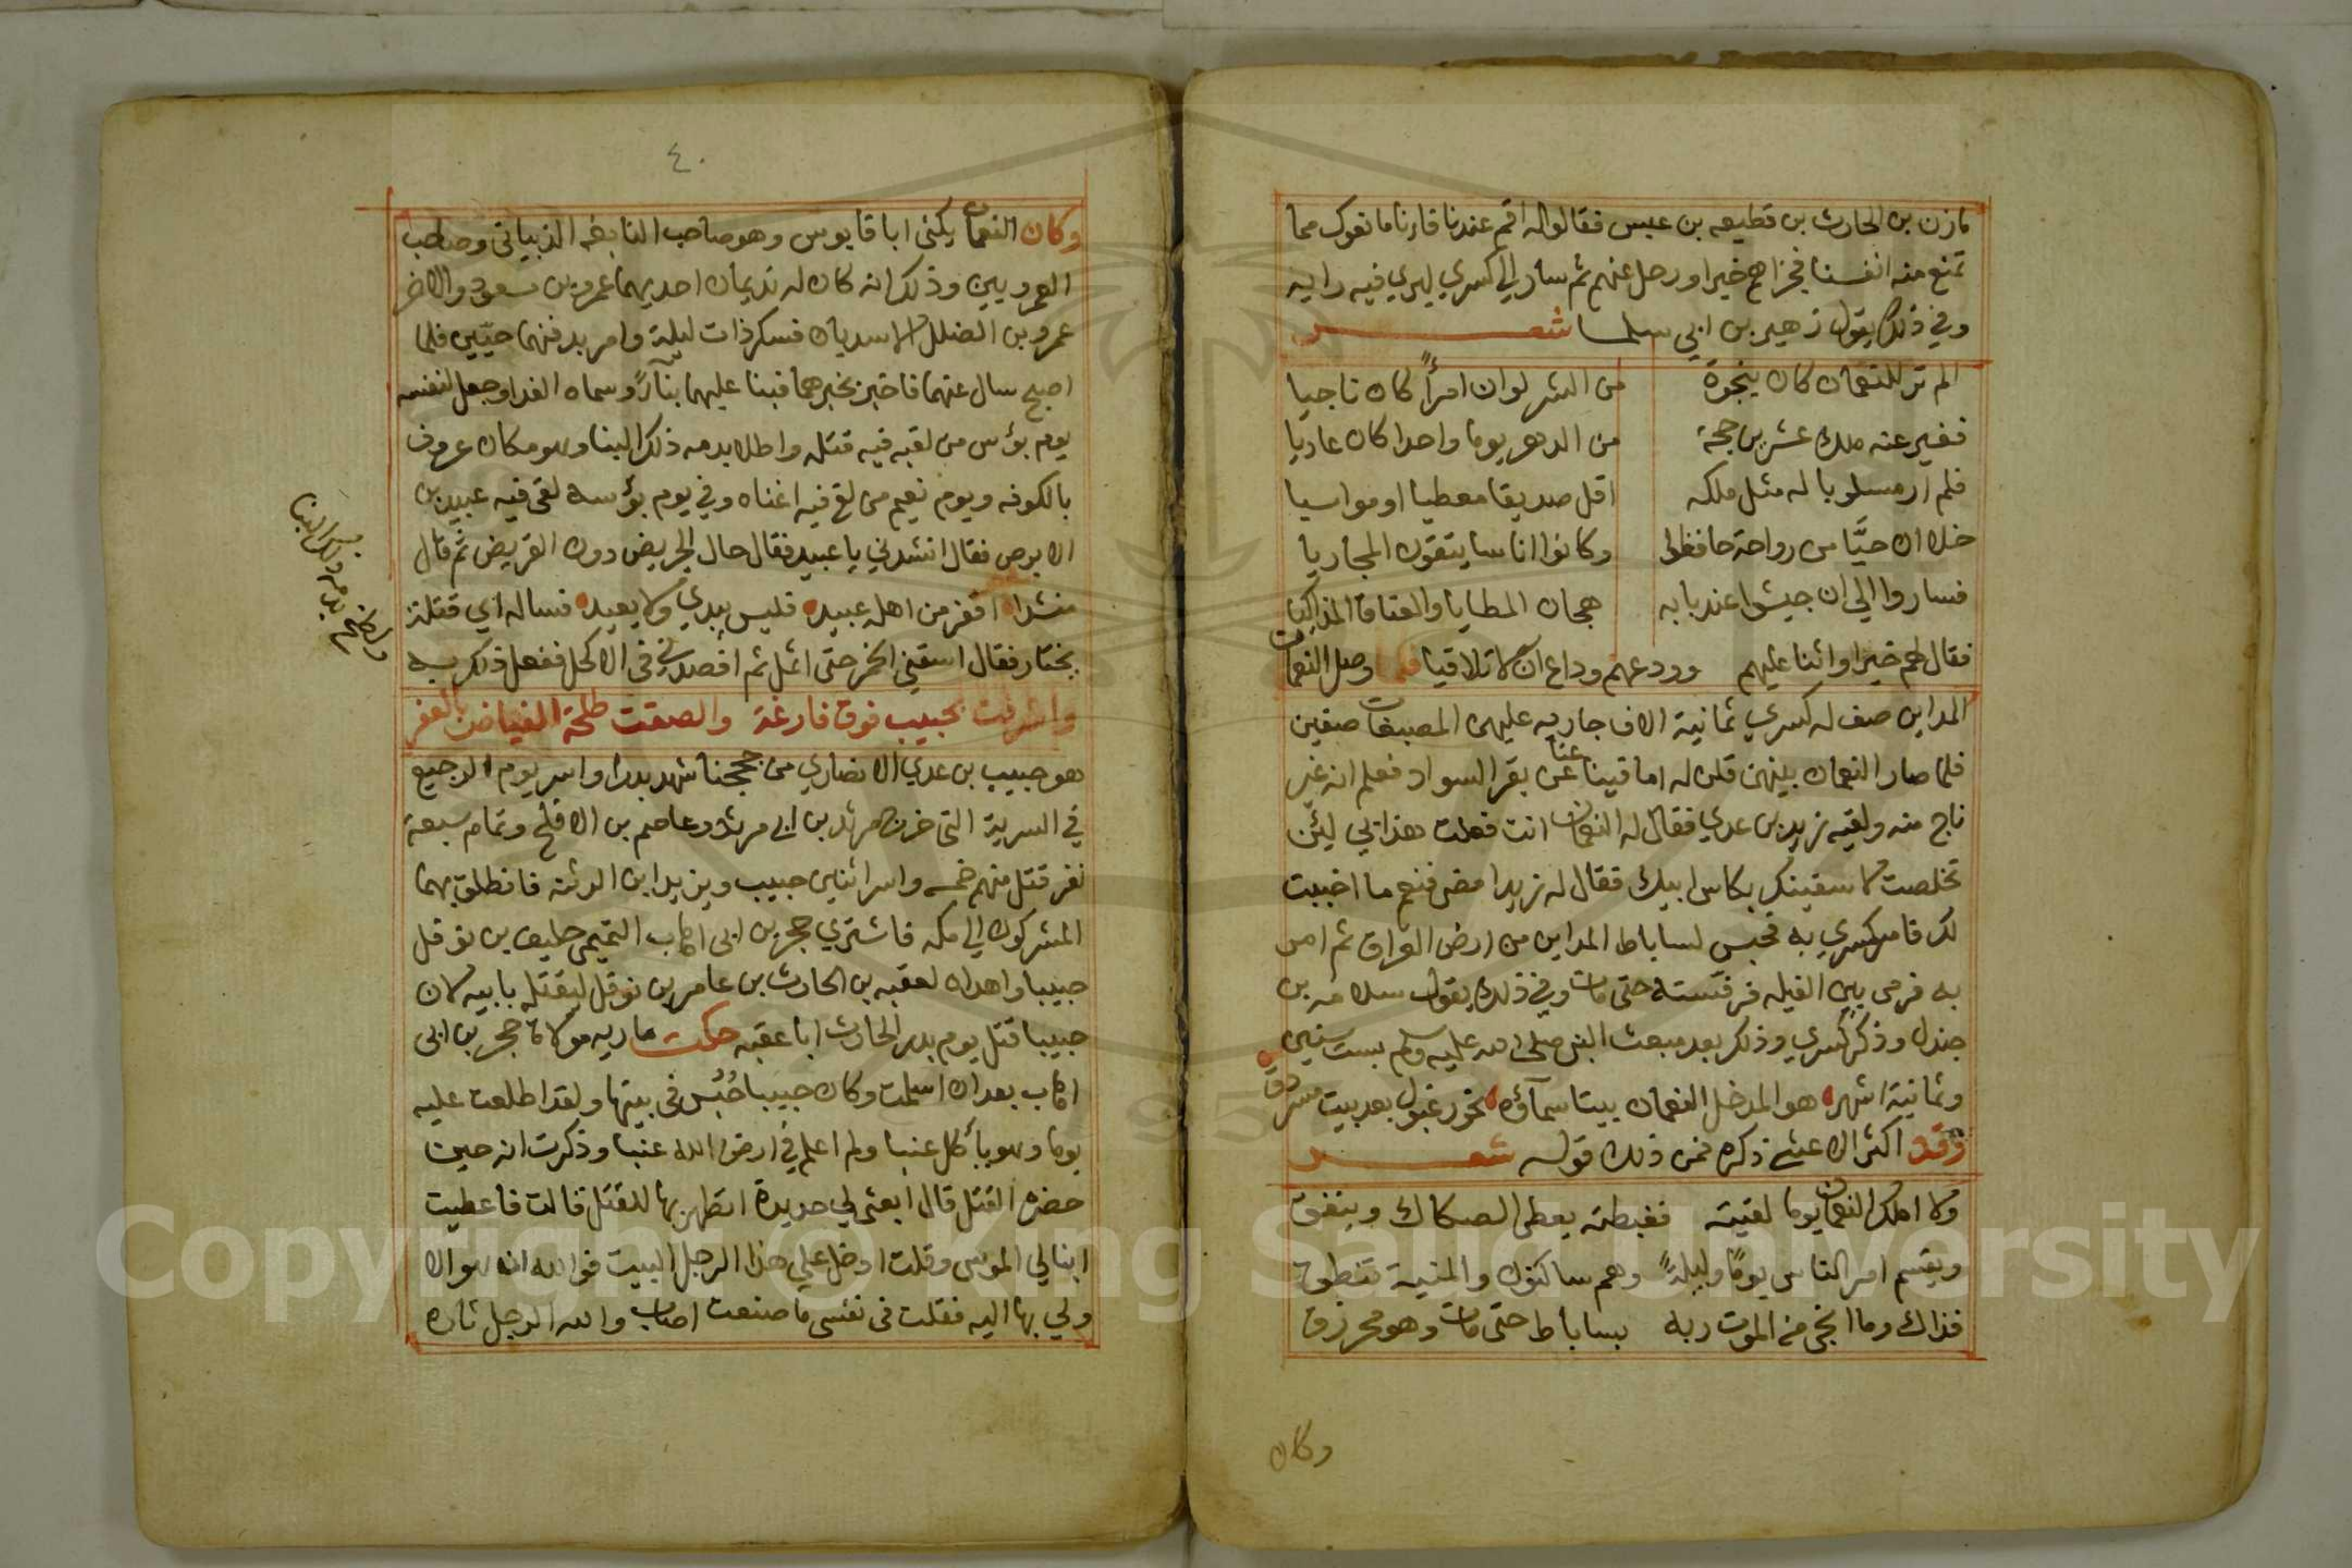 مازن بن الحارث بن قطيعه بن عبس فقالوا له اقم عندنا فاننا مانعوك مما
تمنع منه انفسنا فجزاهم خيرا ورحل عنهم ثم سار الي كسري ليري فيه رايه
وفي ذلك يقول زهير بن ابي سلما شعر
الم تر للنعمان كان بنجوة من الشر لو ان امرأً كان ناجيا
فغير عنه ملك عشرين حجة من الدهر يوما واحدا كان غاديا
فلم ار مسلوبا له مثل ملكه اقل صديقا معطيا او مواسيا
خلا ان حيًّا من رواحة حافظوا وكانوا اناسا يتقون المجازيا
فساروا الي ان جيشوا عند بابه هجان المطايا والعتاق المذاكيا
فقال لهم خيرا واثنا عليهم وودعهم وداع ان لا تلاقيا فلما وصل النعمان
المداين صف له كسري ثمانية الاف جاريه عليهن المصبغات صفين
فلما صار النعمان بينهن قلن له اما فينا عنا عن بقر السواد فعلم انه غير
ناج منه ولقيه زيد بن عدي فقال له النعمان انت فعلت هذا بي ليئن
تخلصت لاسقينك بكاس ابيك فقال له زيد امض فنعم ما اخببت
لك فامر كسري به فحبس لساباط المداين من ارض العراق ثم امر
به فرمي بين الفيله فرفسته حتى مات وفي ذلك يقول سلامه بن
جندل وذكر كسري وذلك بعد مبعث النبي صلى الله عليه وسلم بست سنين
وثمانية اشهر هو المدخل النعمان بيتا سمآؤه نحور فيول بعد بيت مسردق
وقد اكثر الاعشي ذكره فمن ذلك قوله شعر
ولا الملك النعمان يوما لقيته فغبطته يعطي الصكاك وينفق
ويقسم امر الناس يومًا وليلةً وهم ساكنون والمنية تنطق
فذاك وما انجي من الموت ربه بساباط حتى مات وهو محرزق
وكان
٤٠
وكان النعمان يكنى ابا قابوس وهو صاحب النابغه الذبياني وصاحب
العمرويين وذلك انه كان له نديمان احديهما عمرو بن مسعود والاخر
عمرو بن المضلل الاسديان فسكر ذات ليلة وامر بدفنهما حيّين فلما
اصبح سال عنهما فاخبر بخبرهما فبنا عليهما بنآءً وسماه الغدا وجعل لنفسه
يوم بؤس من لقيه فيه قتله واطلا بدمه ذلك البنا وهو مكان عروف
بالكوفه ويوم نعيم من لقي فيه اغناه وفي يوم بؤسه لقي فيه عبيد بن
الابرص فقال انشدني يا عبيد فقال حال الجريض دون القريض ثم قال
منشدا اقفر من اهله عبيد فليس يبدي ولا يعيد فساله اي قتلة
يختار فقال اسقني الخمر حتى اثمل ثم افصدني في الاكحل ففعل ذلك به
بدمه ذلك البنا
واشرفت بخبيب فوق فارغة والصقت طلحة الفياض بالعفر
هو خبيب بن عدي الانصاري من جحجنا شهد بدرا واسر يوم الرجيع
في السرية التي خرج مرثد بن ابي مرثد وعاصم بن الاقلح وتمام سبعة
نفر قتل منهم خمسه واسر اثنان خبيب ويزيد ابن الدثنه فانطلق بهما
المشركون الي مكه فاشتري حجر بن ابي اهاب التميمي حليف بن نوفل
خبيبا واهداه لعقبه بن الحارث بن عامر بن نوفل ليقتله بابيه لان
خبيبا قتل يوم بدر الحارث ابا عقبه حكت ماريه مولاة حجر بن ابي
اهاب بعد ان اسلمت وكان خبيبا حُبُس في بيتها ولقد اطلعت عليه
يوما وهو يأكل عنبا ولم اعلم في ارض الله عنبا وذكرت انه حين
حضره القتل قال ابعثي لي حديدة اتطهر بها للقتل قالت فاعطيت
ابنا لي الموسى وقلت ادخل علي هذا الرجل البيت فوالله انه هو الا
ولي بها اليه فقلت في نفسي ما صنعت اصاب والله الرجل ثاره